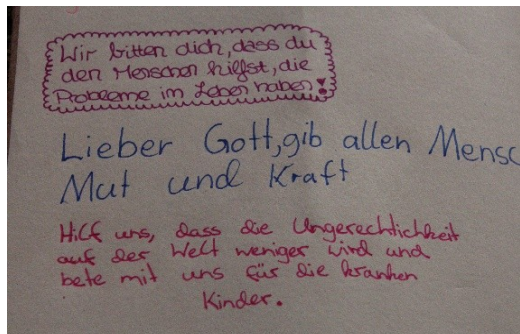 Wir bitten dich, dass du
den Menschen hilfst, die
Probleme im Leben haben!
Lieber Gott, gib allen Mensc
Mut und Kraft
Hilf uns, dass die Ungerechtichkeit
auf der Welt weniger wird und
bete mit uns für die kranken
Kinder.